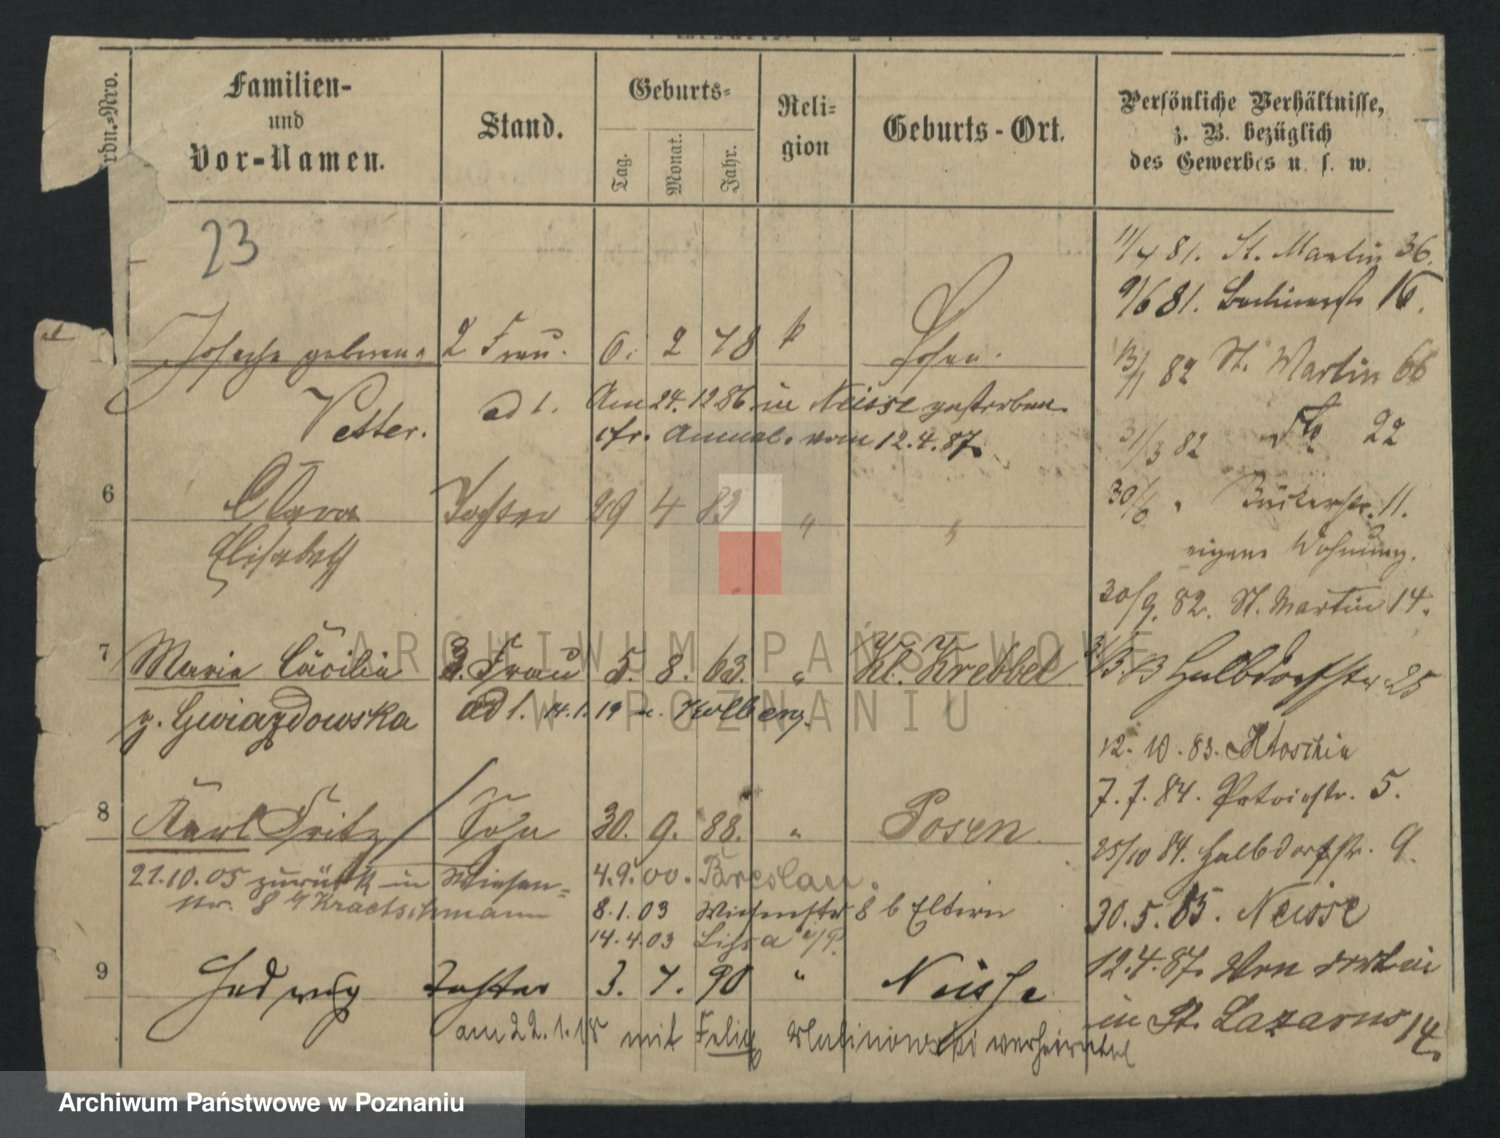 Ordn.-Nro.
Familien-
und
Vor-Namen.
Stand.
Geburts-
Tag.
Monat.
Jahr.
Reli-
gion
Geburts-Ort.
Persönliche Verhältnisse,
z. B. bezüglich
des Gewerbes u. s. w.
23
11/4 81. St. Martin 36.
9/6 81. Berlinerstr 16.
Josepha geborene 2 Frau. 6. 2 78 k Posen.
13/1 82 St. Martin 66
Vetter. ad 1. Am 24.12 86 in Neisse gestorben
cfr. Anmel. vom 12.4.87
31/3 82 22
6 Clara Tochter 29 4 83 " "
Elisabeth
30/6 " Bäckerstr. 11.
eigene Wohnung.
30/9. 82. St. Martin 14.
7 Marie Cäcilie 3. Frau 5. 8. 63. " Kl. Krebbel
g. Gwiazdowska ad 1. 14.1.19 n. Kolberg.
83 Halbdorfstr 25
12.10.83. Krotoschin
7.7.84. Patriestr. 5.
8 Karl Fritz Sohn 30. 9. 88. " Posen
25/10 84. Halbdorfstr. 9.
21.10.05 zurück in Wiesen-
str. 8 b/ Kraetschmann
4.9.00. Breslau.
8.1.03 Wiesenstr 8 b Eltern
14.4.03 Lissa i/P.
30.5.85. Neisse
9 Hedwig Tochter 3. 7. 90 " Neisse
12.4.87. Von
in St. Lazarus 14.
am 22.1.18 mit Felix Malinowski verheiratet
ARCHIWUM PAŃSTWOWE
W POZNANIU
Archiwum Państwowe w Poznaniu